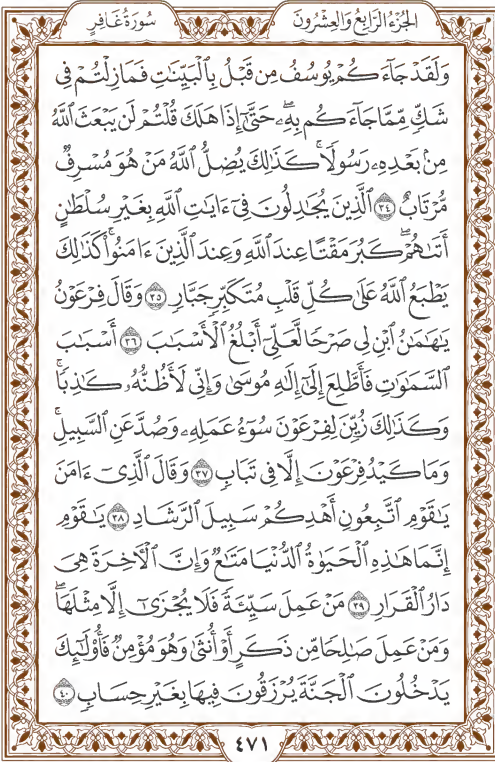 سُورَةُ غَافِرٍ
الجُزْءُ الرَّابِعُ وَالعِشْرُونَ
وَلَقَدْ جَآءَكُمْ يُوسُفُ مِن قَبْلُ بِٱلْبَيِّنَٰتِ فَمَا زِلْتُمْ فِى
شَكٍّ مِّمَّا جَآءَكُم بِهِۦۖ حَتَّىٰٓ إِذَا هَلَكَ قُلْتُمْ لَن يَبْعَثَ ٱللَّهُ
مِنۢ بَعْدِهِۦ رَسُولًاۚ كَذَٰلِكَ يُضِلُّ ٱللَّهُ مَنْ هُوَ مُسْرِفٌ
مُّرْتَابٌ ٣٤ ٱلَّذِينَ يُجَٰدِلُونَ فِىٓ ءَايَٰتِ ٱللَّهِ بِغَيْرِ سُلْطَٰنٍ
أَتَىٰهُمْۖ كَبُرَ مَقْتًا عِندَ ٱللَّهِ وَعِندَ ٱلَّذِينَ ءَامَنُوا۟ۚ كَذَٰلِكَ
يَطْبَعُ ٱللَّهُ عَلَىٰ كُلِّ قَلْبِ مُتَكَبِّرٍ جَبَّارٍ ٣٥ وَقَالَ فِرْعَوْنُ
يَٰهَٰمَٰنُ ٱبْنِ لِى صَرْحًا لَّعَلِّىٓ أَبْلُغُ ٱلْأَسْبَٰبَ ٣٦ أَسْبَٰبَ
ٱلسَّمَٰوَٰتِ فَأَطَّلِعَ إِلَىٰٓ إِلَٰهِ مُوسَىٰ وَإِنِّى لَأَظُنُّهُۥ كَٰذِبًاۚ
وَكَذَٰلِكَ زُيِّنَ لِفِرْعَوْنَ سُوٓءُ عَمَلِهِۦ وَصُدَّ عَنِ ٱلسَّبِيلِۚ
وَمَا كَيْدُ فِرْعَوْنَ إِلَّا فِى تَبَابٍ ٣٧ وَقَالَ ٱلَّذِىٓ ءَامَنَ
يَٰقَوْمِ ٱتَّبِعُونِ أَهْدِكُمْ سَبِيلَ ٱلرَّشَادِ ٣٨ يَٰقَوْمِ
إِنَّمَا هَٰذِهِ ٱلْحَيَوٰةُ ٱلدُّنْيَا مَتَٰعٌ وَإِنَّ ٱلْءَاخِرَةَ هِىَ
دَارُ ٱلْقَرَارِ ٣٩ مَنْ عَمِلَ سَيِّئَةً فَلَا يُجْزَىٰٓ إِلَّا مِثْلَهَاۖ
وَمَنْ عَمِلَ صَٰلِحًا مِّن ذَكَرٍ أَوْ أُنثَىٰ وَهُوَ مُؤْمِنٌ فَأُو۟لَٰٓئِكَ
يَدْخُلُونَ ٱلْجَنَّةَ يُرْزَقُونَ فِيهَا بِغَيْرِ حِسَابٍ ٤٠
٤٧١